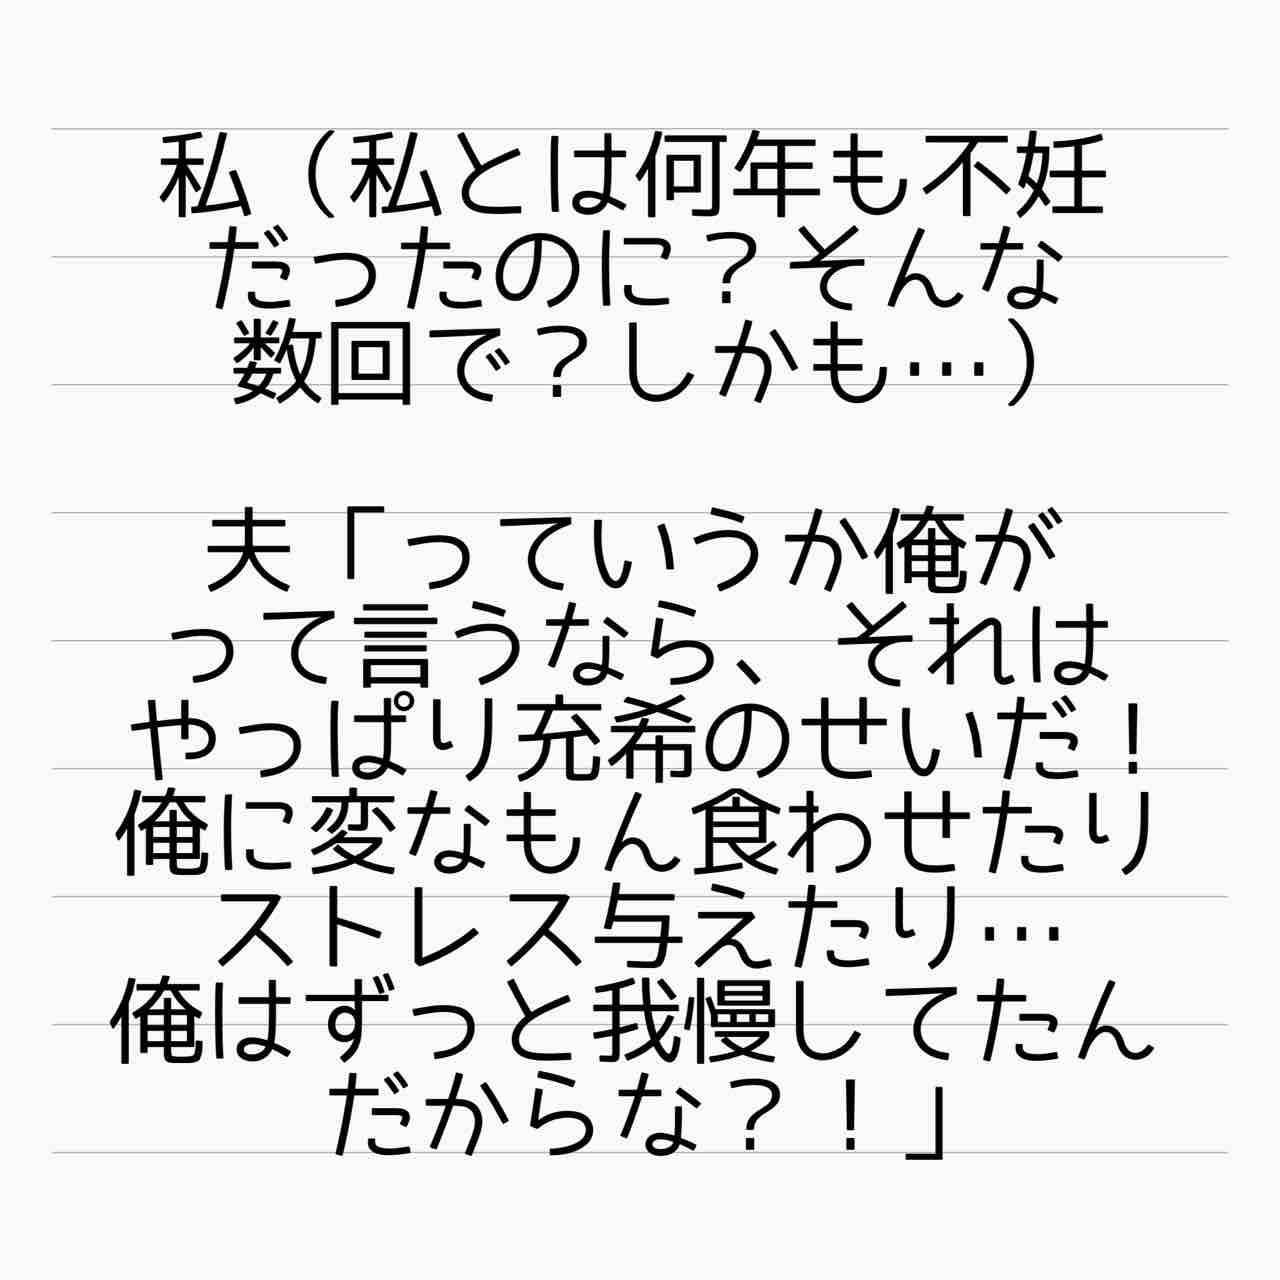 私（私とは何年も不妊
だったのに？そんな
数回で？しかも…）
夫「っていうか俺が
って言うなら、それは
やっぱり充希のせいだ！
俺に変なもん食わせたり
ストレス与えたり…
俺はずっと我慢してたん
だからな？！」